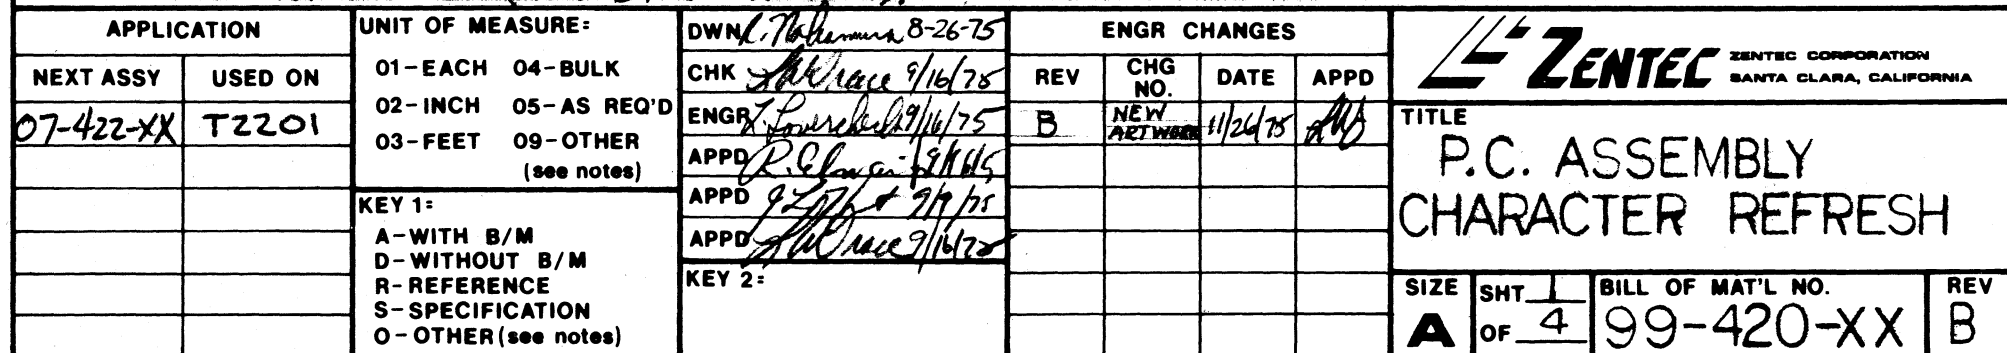 APPLICATION
NEXT ASSY USED ON
07-422-XX T2201
UNIT OF MEASURE:
01-EACH 04-BULK
02-INCH 05-AS REQ'D
03-FEET 09-OTHER
(see notes)
KEY 1:
A-WITH B/M
D-WITHOUT B/M
R-REFERENCE
S-SPECIFICATION
O-OTHER (see notes)
DWN R. Nakamura 8-26-75
CHK 9/16/75
ENGR 9/16/75
APPD
APPD 9/9/75
APPD 9/16/75
KEY 2:
ENGR CHANGES
REV CHG NO. DATE APPD
B NEW ARTWORK 11/26/75
ZENTEC ZENTEC CORPORATION
SANTA CLARA, CALIFORNIA
TITLE
P.C. ASSEMBLY
CHARACTER REFRESH
SIZE
A
SHT 1
OF 4
BILL OF MAT'L NO.
99-420-XX
REV
B